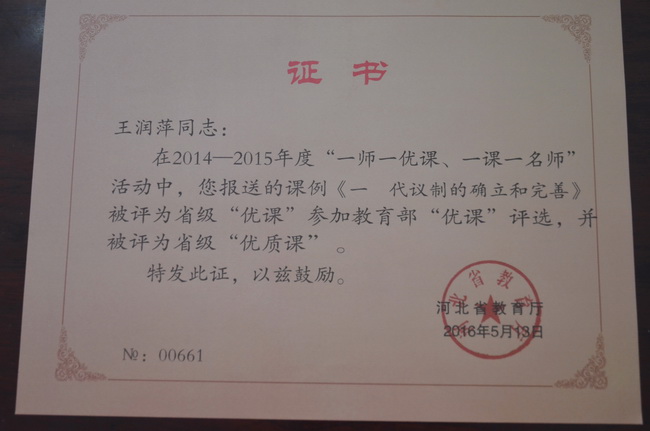 证书
王润萍同志：
在2014—2015年度“一师一优课、一课一名师”
活动中，您报送的课例《一　代议制的确立和完善》
被评为省级“优课”参加教育部“优课”评选，并
被评为省级“优质课”。
特发此证，以兹鼓励。
河北省教育厅
2016年5月13日
№：00661